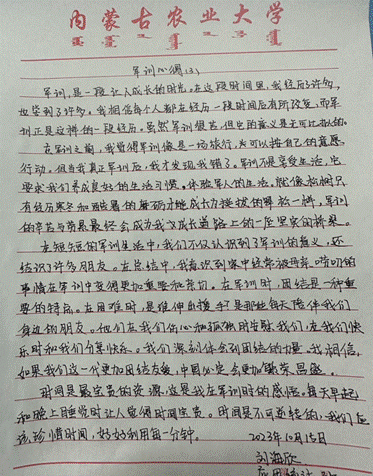 内蒙古农业大学
军训心得(3)
军训,是一段让人成长的时光。在这段时间里,我经历了许多,
也学到了许多。我相信每个人都在经历一段时间后有所改变,而军
训正是这样的一段经历。虽然军训很苦,但它的意义是无可比拟的。
在军训之前,我觉得军训像是一场旅行,大可以按自己的意愿
行动。但当我真正军训后,我才发现我错了。军训不是享受生活,它
要求我们养成良好的生活习惯。体验军人的生活。就像松树只
有经历寒冬和酷暑的磨砺才能成长为挺拔的
的辛苦与劳累最终会成为我成长道路上的一座坚实的桥梁。
在短短的军训生活中,我们不仅认识到了军训的意义,还
结识了许多朋友。在总结中,我意识到家中经常被 唠叨的
事情在军训中变得更加重要和亲切。在军训时,团结是一种重
要的特点。在困难时,是谁伸出援手?是那些每天陪伴我们
身边的朋友。他们在我们伤心和孤独时安慰我们,在我们快
乐时和我们分享快乐。我们深刻体会到团结的力量。我相信,
如果我们这一代更加团结友爱,中国必定会更加繁荣昌盛。
时间是最宝贵的资源,这是我在军训时的感悟。每天早起
和晚上睡觉时让人觉得时间宝贵。时间是不可逆转的,我们应
该珍惜时间,好好利用每一分钟。
2023年10月15日
刘海欣